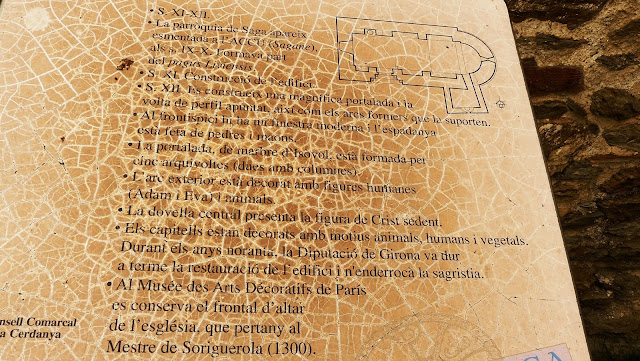 • S. XI-XII.
• La parròquia de Saga apareix
esmentada a l'ACCU (Sagane),
als s. IX-X. Formava part
del pagus Liviensis.
• S. XI. Construcció de l'edifici.
• S. XII. Es construeix una magnífica portalada i la
volta de perfil apuntat, així com els arcs formers que la suporten.
• Al frontispici hi ha una finestra moderna i l'espadanya
està feta de pedres i maons.
• La portalada, de marbre d'Isòvol, està formada per
cinc arquivoltes (dues amb columnes).
• L'arc exterior està decorat amb figures humanes
(Adam i Eva) i animals.
• La dovella central presenta la figura de Crist sedent.
• Els capitells estan decorats amb motius animals, humans i vegetals.
Durant els anys noranta, la Diputació de Girona va dur
a terme la restauració de l'edifici i n'enderrocà la sagristia.
• Al Musée des Arts Décoratifs de París
es conserva el frontal d'altar
de l'església, que pertany al
Mestre de Soriguerola (1300).
nsell Comarcal
a Cerdanya